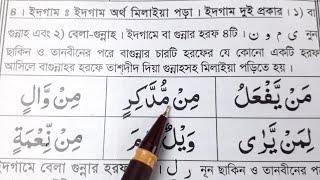 ৪। ইদগাম ঃ ইদগাম অর্থ মিলাইয়া পড়া। ইদগাম দুই প্রকার। ১) বা
গুন্নাহ এবং ২) বেলা-গুন্নাহ। ইদগামে বা গুন্নার হরফ ৪টি। ي م و ن নুন
ছাকিন ও তানবীনের পরে বাগুন্নার চারটি হরফের যে কোনো একটি হরফ
আসিলে বাগুন্নাহর হরফে তাশদীদ দিয়া গুন্নাহসহ মিলাইয়া পড়িতে হয়।
مَنْ يَّفْعَلْ مِنْ مُّدَّكِرٍ مِنْ وَّالٍ
لِمَنْ يَّرٰى وَيْلٌ مِنْ نِّعْمَةٍ
ইদগামে বেলা গুন্নার হরফ ل ر নুন ছাকিন ও তানবীনের পরে